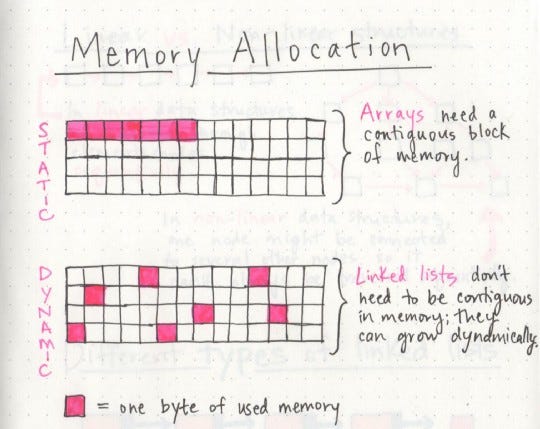 Memory Allocation
STATIC
Arrays need a
contiguous block
of memory.
DYNAMIC
Linked lists don't
need to be contiguous
in memory; they
can grow dynamically.
= one byte of used memory
Different types of linked lists